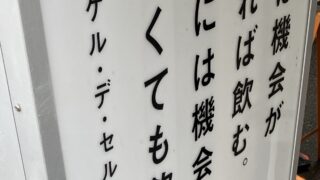 機会が
れば飲む。
には機会
くても
ケル・デ・セル